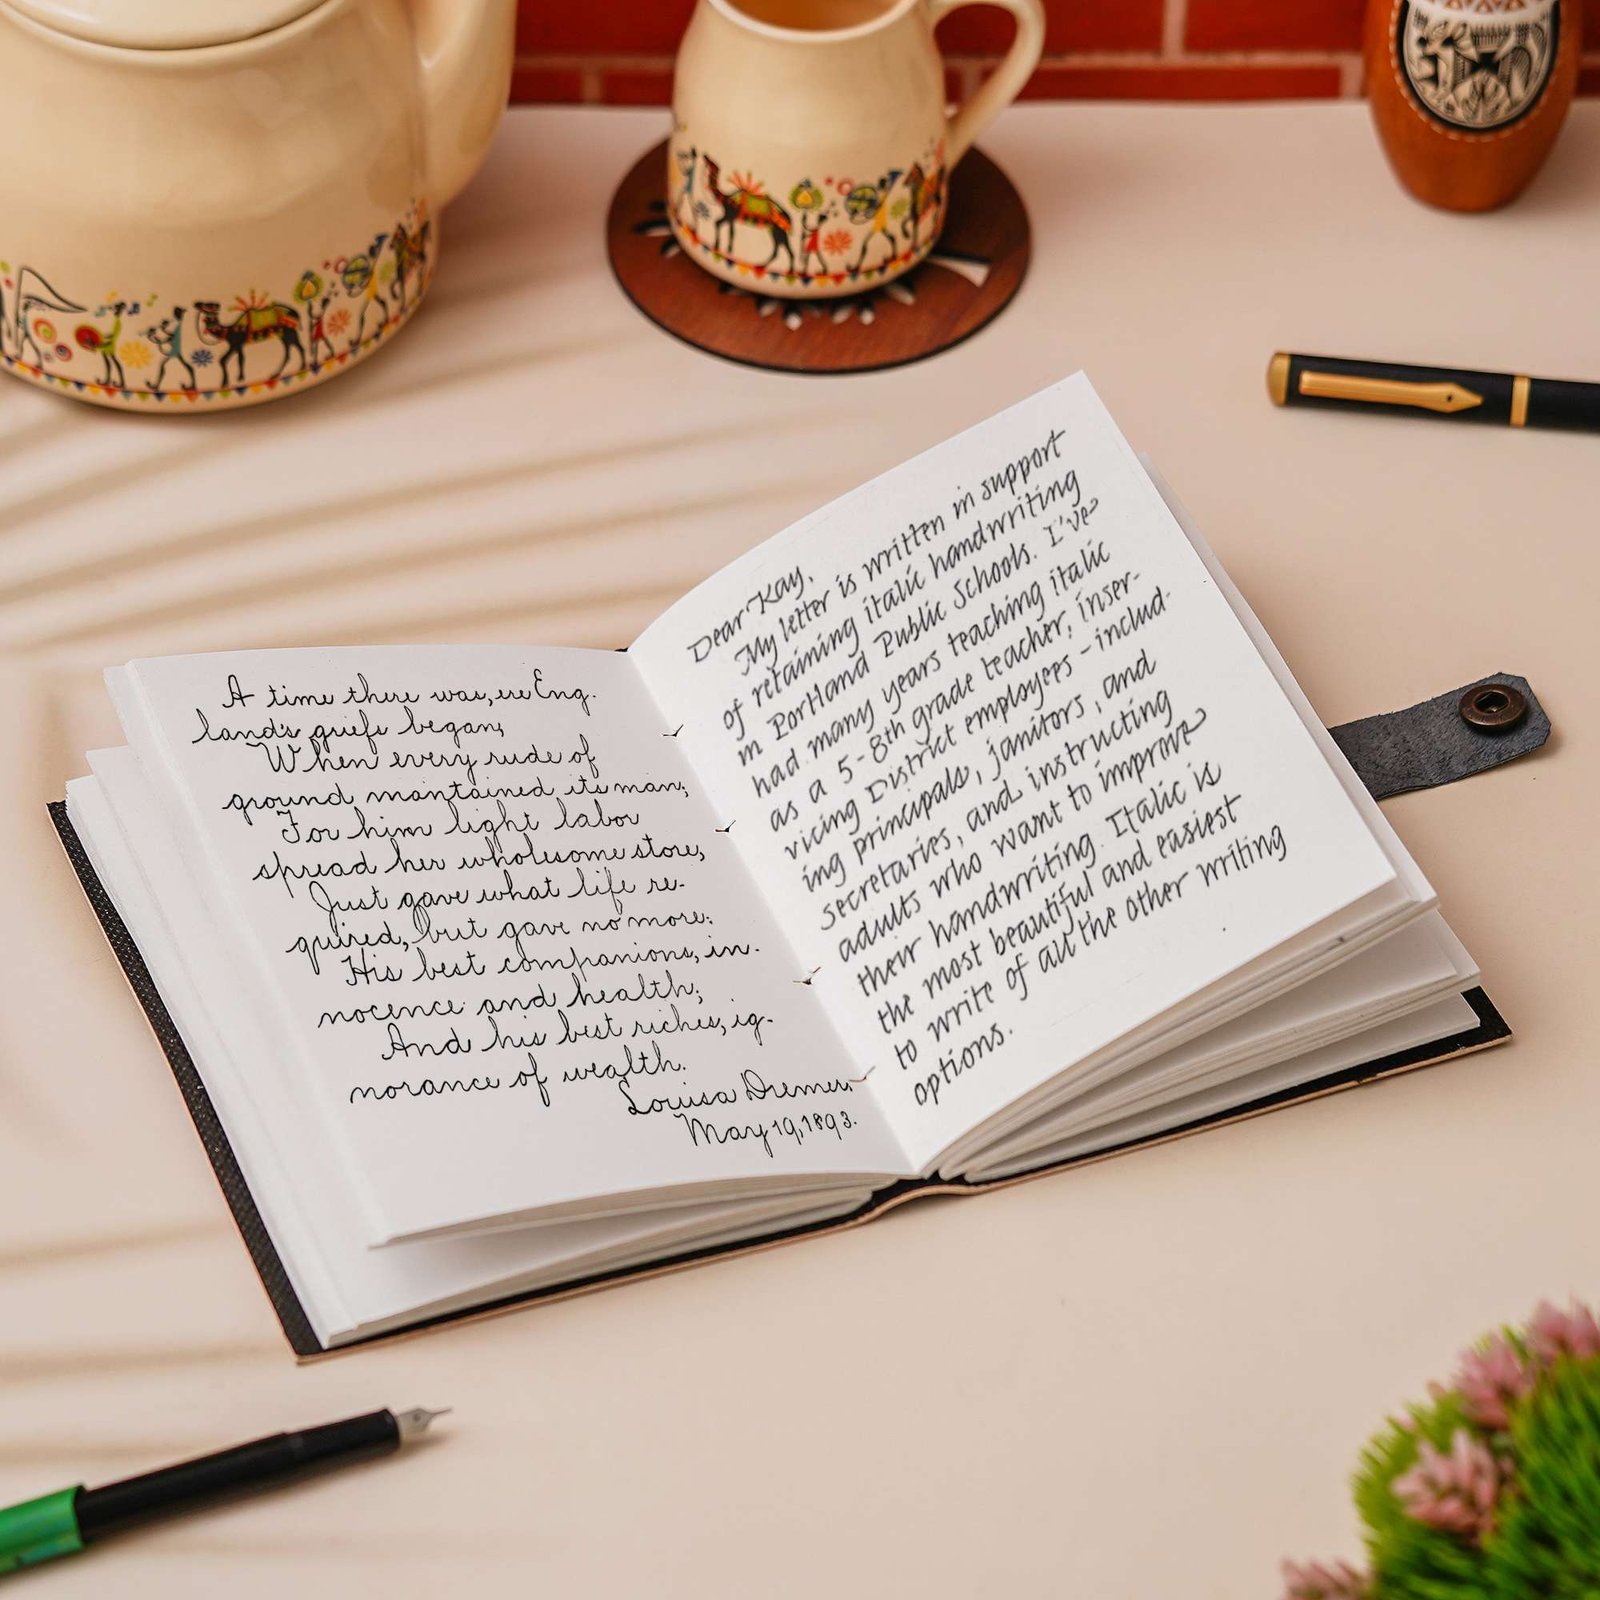 A time there was, ere Eng-
land's griefs began,
When every rude of
ground mantained its man;
For him light labor
spread her wholesome store,
Just gave what life re-
quired, but gave no more:
His best companions, in-
nocence and health;
And his best riches, ig-
norance of wealth.
Louisa Dremer,
May 19, 1893.
Dear Kay,
My letter is written in support
of retaining italic handwriting
in Portland Public Schools. I've
had many years teaching italic
as a 5-8th grade teacher, inser-
vicing District employees - includ-
ing principals, janitors, and
secretaries, and instructing
adults who want to improve
their handwriting. Italic is
the most beautiful and easiest
to write of all the other writing
options.